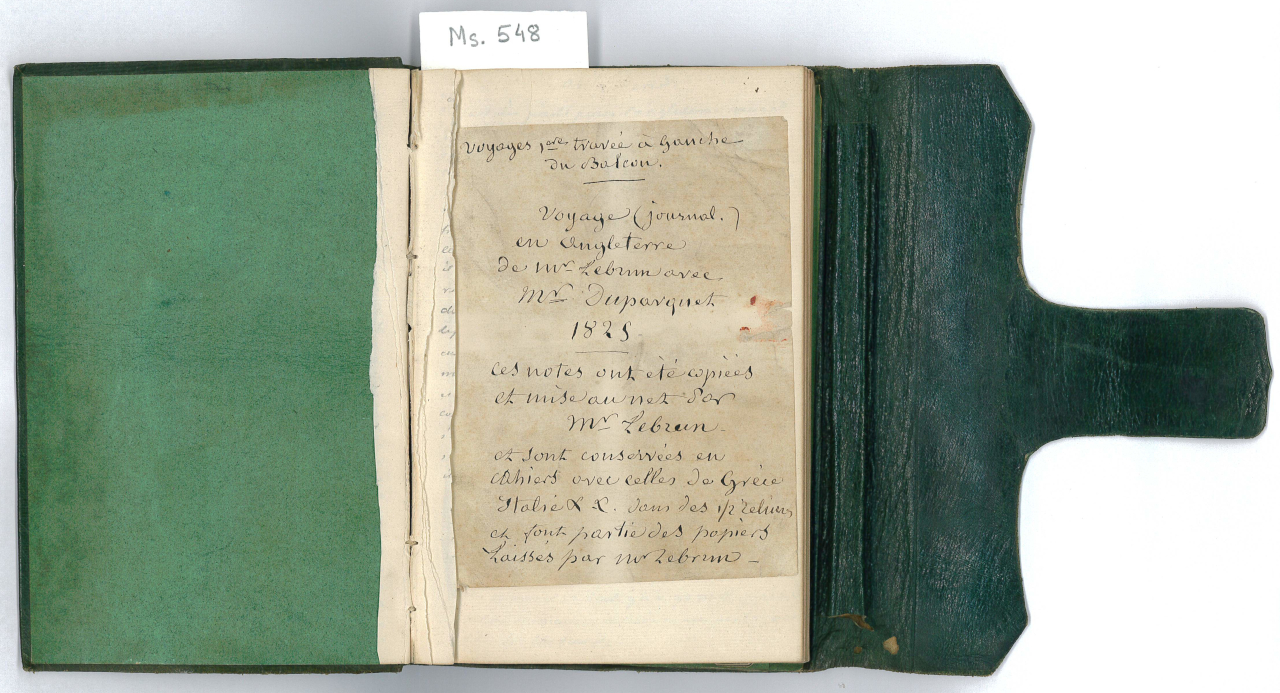 Ms. 548
Voyages 1ere travée à Gauche
du Balcon.
Voyage (journal.)
en Angleterre
de Mr Lebrun avec
Mr Duparquet
1825
ces notes ont été copiées
et mise au net Par
Mr Lebrun
et sont conservées en
cahiers avec celles de Grèce
Italie & &. dans des 1/2 reliures
et font partie des papiers
laissés par Mr Lebrun